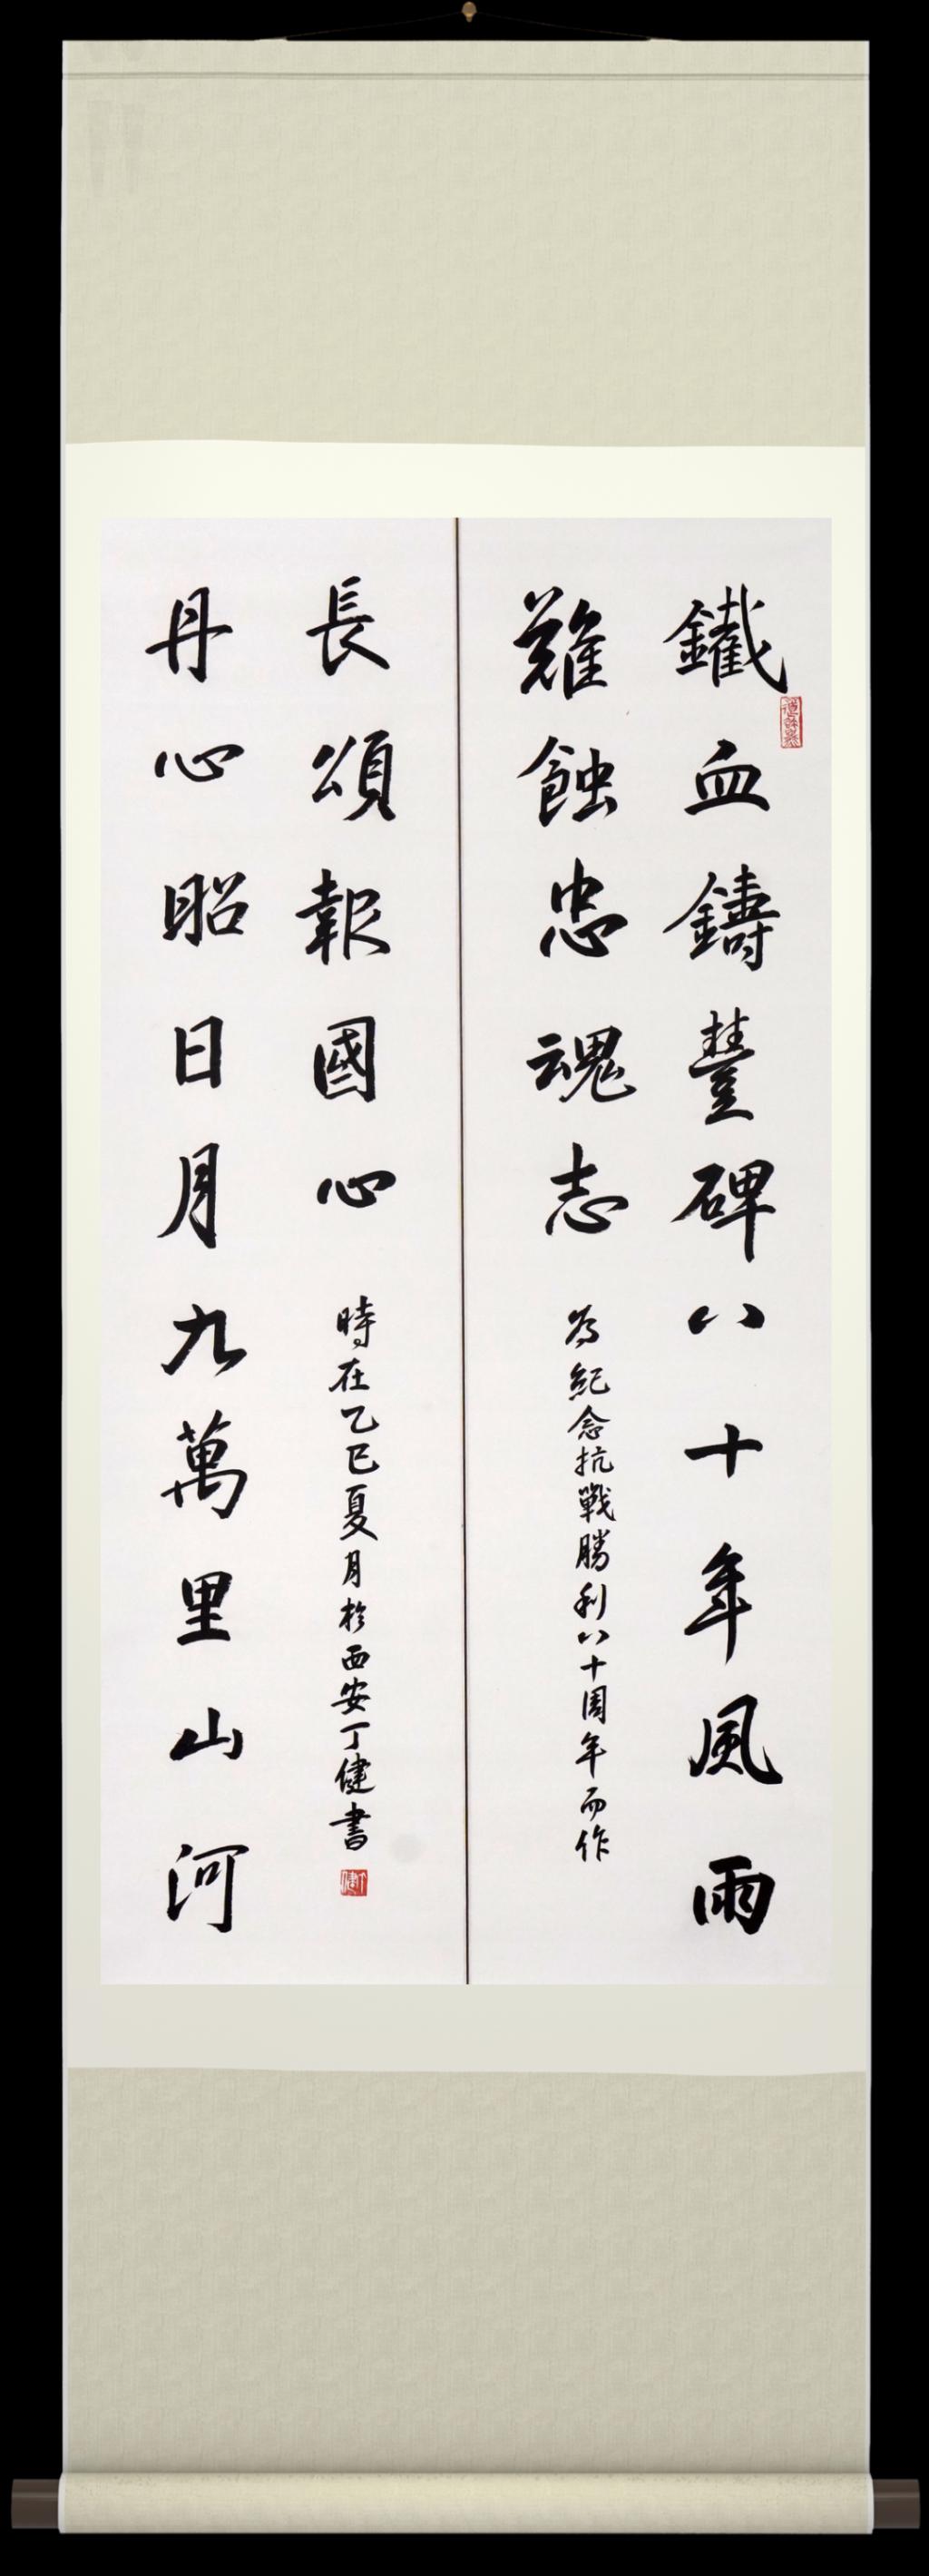 鐵血鑄豐碑八十年風雨
難蝕忠魂志
為紀念抗戰勝利八十周年而作
丹心昭日月九萬里山河
長頌報國心
時在乙巳夏月於西安丁健書
丁健